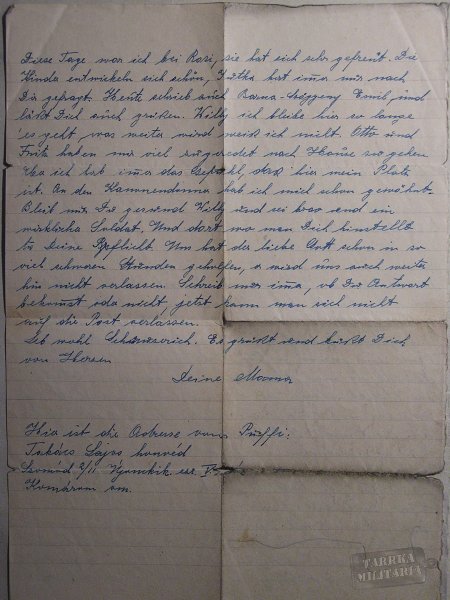 Diese Tage war ich bei Rosi, sie hat sich sehr gefreut. Die
Kinder entwickeln sich schön, Jutka hat imer nur nach
Dir gefragt. Heute schrieb auch Barna- Emil und
läßt Dich auch grüßen. Willy ich bleibe hier so lange
es geht, was weiter wird weis ich nicht. Otto und
Fritz haben mir viel zugeredet nach Hause zu gehen
ich hab imer das Gefühl, das hier mein Platz
ist. An den Kanonendonner hab ich mich schon gewöhnt.
Bleib mir Du gesund Willy und sei brav und ein
wirklicher Soldat. Und dort wo man Dich hinstellt
tu Deine Pflicht. Uns hat der liebe Gott schon in so
viel schweren Stunden geholfen, er wird uns auch weiter
hin nicht verlassen. Schreib nur imer, ob Du Antwort
bekommst oder nicht jetzt kann man sich nicht
auf die Post verlassen.
Leb wohl Es grüßt und küßt Dich
von Herzen
Deine Mama
Hier ist die Adresse vom Puffi:
Takács Lajos honvéd
Szomód 2/II
Komárom m.
TARRKA
MILITARIA